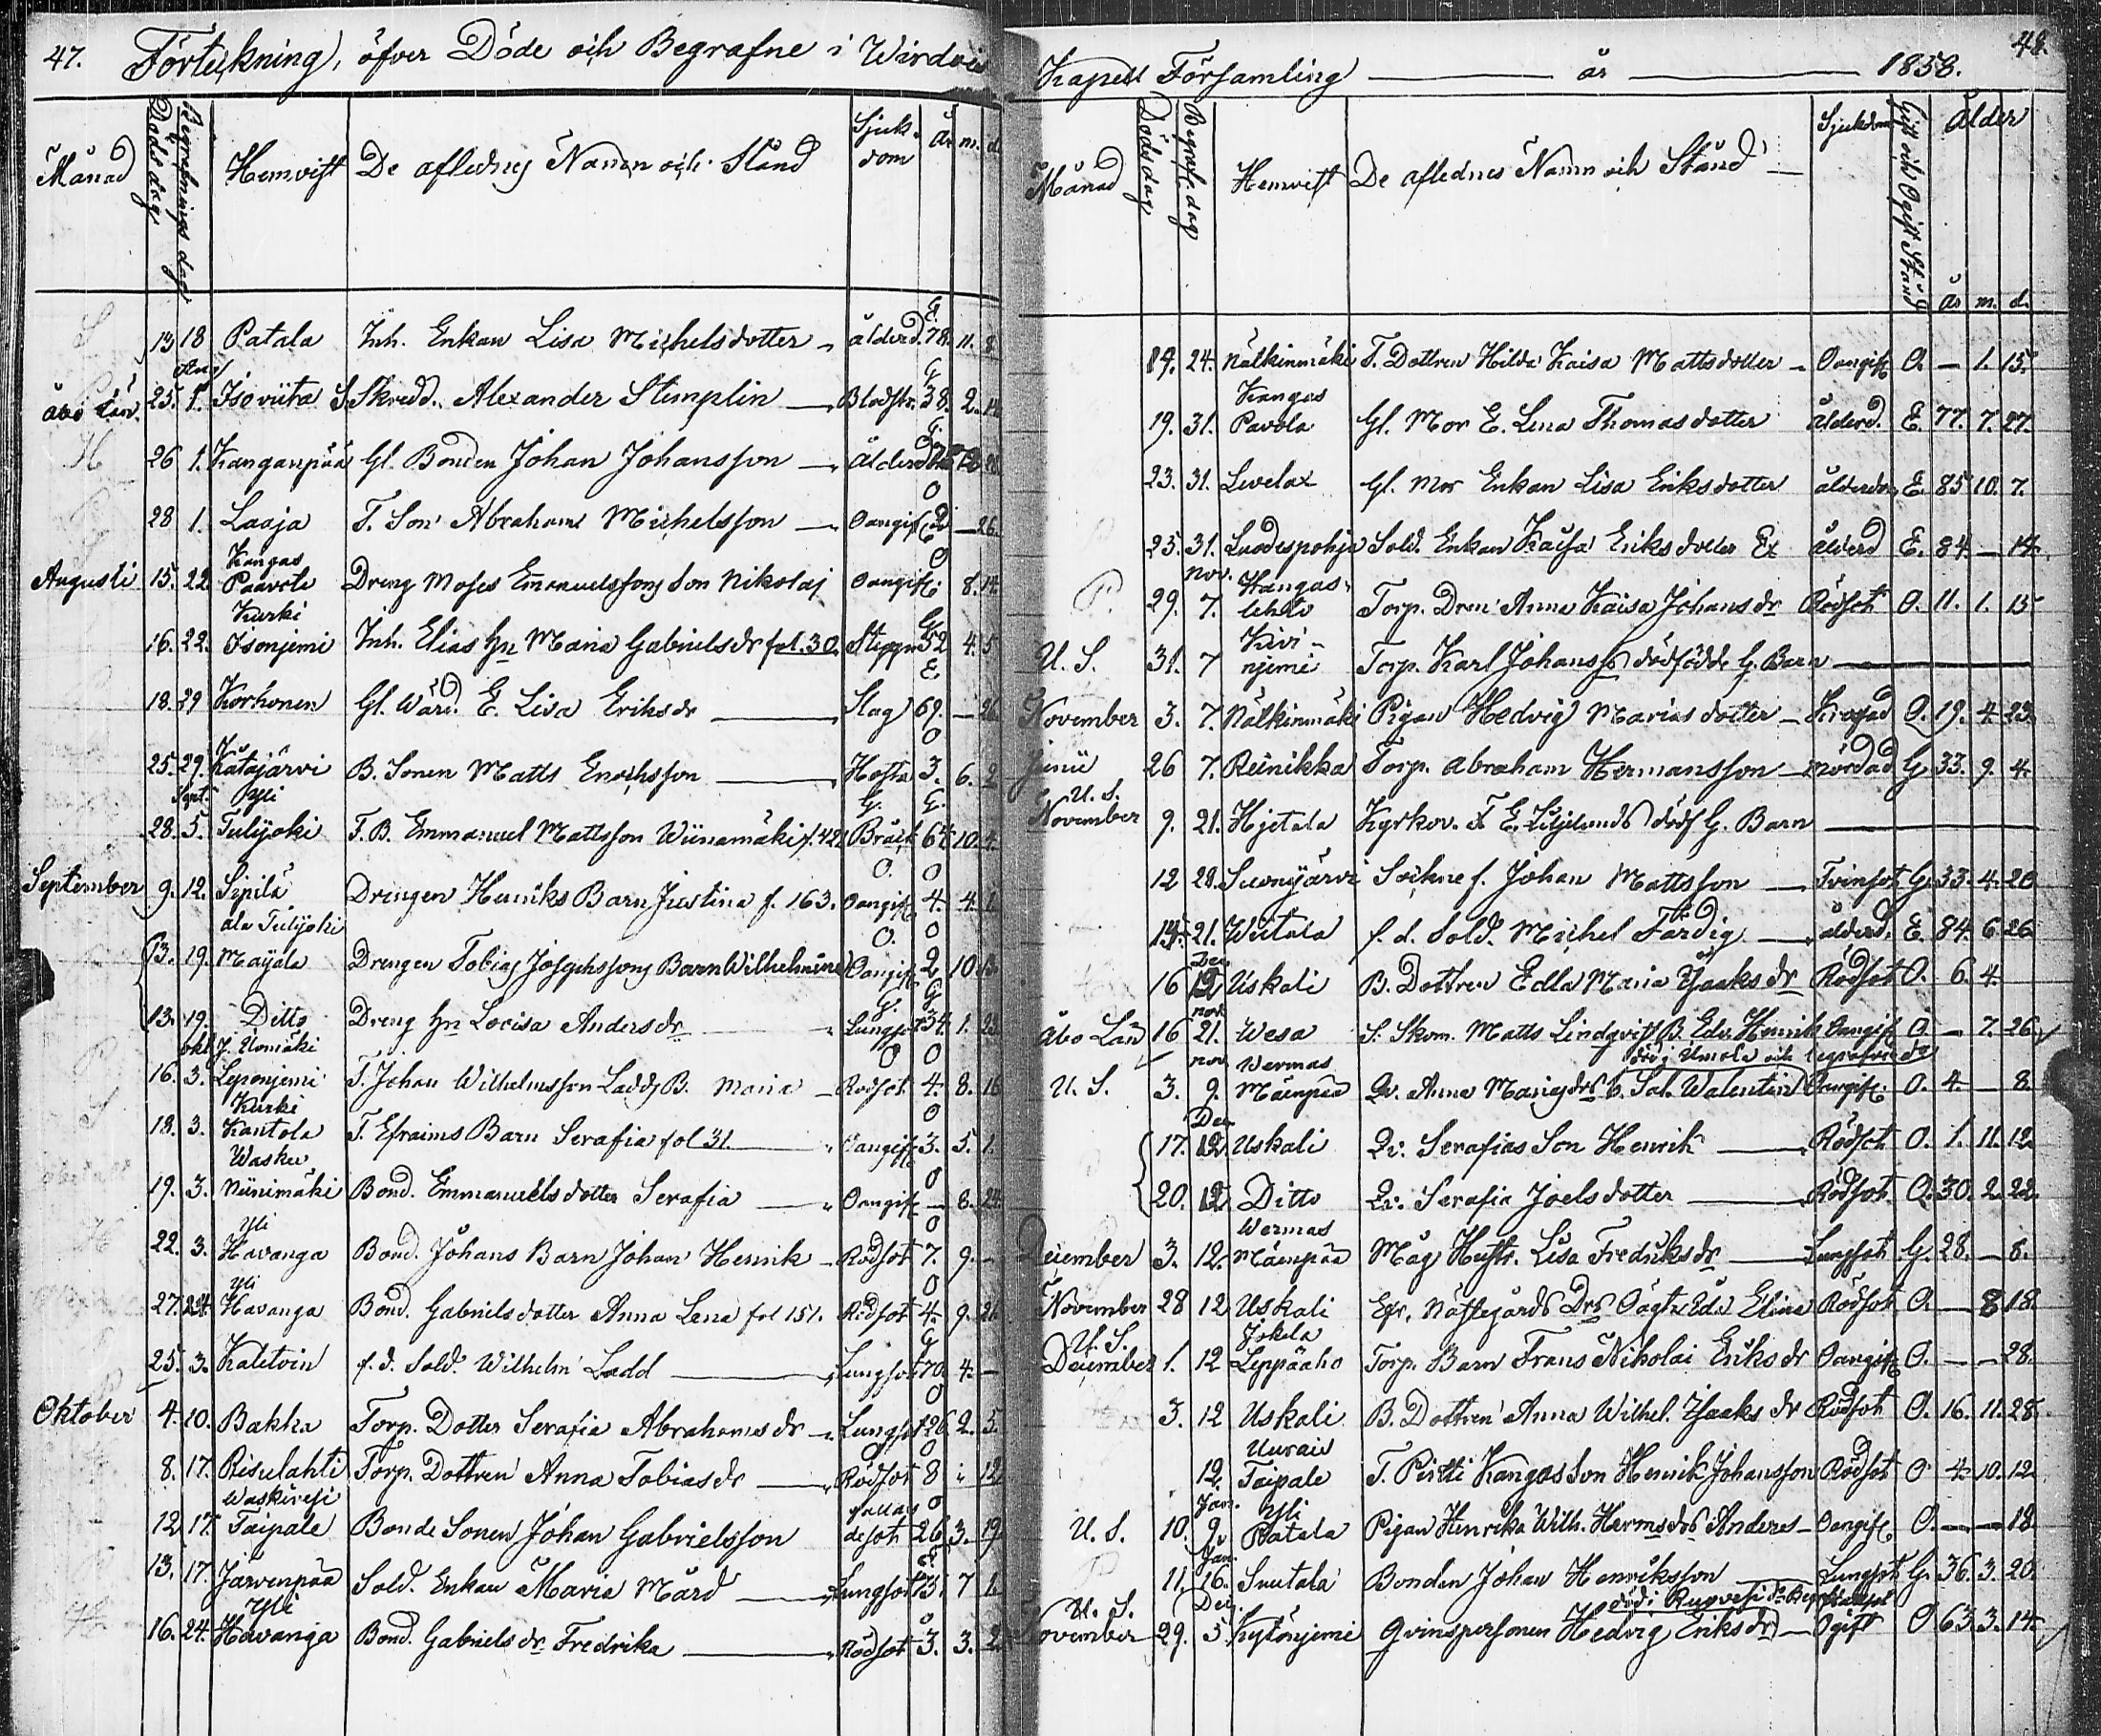 47. Förteckning, öfver Döde och Begrafne i Wirdois
Månad Dödsdag Begrafnings dag Hemvist De aflednes Namn och Stånd Sjukdom År m. d.
13 18 Patala Inh. Enkan Lisa Michelsdotter - ålderd. E. 78. 11. 8
Åbo Län. 25. 1. Isoviita S. Skredd. Alexander Stimplin — Blodstr. G. 38. 2. 14
26 1. Kanganpää Gl. Bonden Johan Johansson — Ålderd G.
28 1. Laaja T. Son Abraham Michelsson — Oangif O 2 — 26.
Augusti 15. 22 Kangas Paavola Dreng Moses Emanuelssons Son Nikolaj Oangif O 8. 14.
16. 22. Kurki Isonjemi Inh. Elias Hu Maria Gabriels dr fol. 30. G. 52 4. 5
18. 29 Korhonen Gl. Wärd. E. Lisa Eriks dr — Slag E. 69. — 26
25. 29. Katajärvi B. Sonen Matts Enochsson — Hosta O 3. 6. 2
28. Sept. 5. Yli Tulijoki T. B. Emmanuel Mattsson Wiinamäki f. 42 Bråck G. 64. 10. 4.
September 9. 12. Sipilä Drengen Henriks Barn Justina f. 163. Oangif O 4. 4. 1.
13. 19. ala Tulijoki Majala Drengen Tobias Josephssons Barn Wilhelmina Oangif O 2 10. 13.
13. 19. Ditto Dreng Hu Lovisa Anders dr Lungsot G 34. 1. 23
16. Okt 3. J. Uomäki Leponjemi T. Johan Wilhelmsson Ladds B. Maria - Rödsot O 4. 8. 16
18. 3. Kurki Kantola T. Efraims Barn Serafia fol 31. — Oangif O 3. 5. 1.
19. 3. Wasku Niinimäki Bond. Emmanuels dotter Serafia — Oangif O — 8. 24.
22. 3. Yli Havanga Bond. Johans Barn Johan Henrik - Rödsot O 7. 9. -
27. 24. Yli Havanga Bond. Gabriels dotter Anna Lena fol 151. Rödsot O 4. 9. 26
25. 3. Kaletvin f. d. Sold. Wilhelm Ladd — Lungsot G 70. 4. —
Oktober 4. 10. Bakka Torp. Dotter Serafia Abrahams dr - Lungsot O 26 2. 5.
8. 17. Risulahti Torp. Dottren Anna Tobias dr — Rödsot O 8 " 12
12 17. Waskivesi Taipale Bonde Sonen Johan Gabrielsson O 26. 3. 19
13. 17. Järvenpää Sold. Enkan Maria Mård — Lungsot 7 1.
16. 24. Yli Havanga Bond. Gabriels dr Fredrika — Rödsot O 3. 3. 2.
Kapell Församling — år — 1858. 48.
Månad Dödsdag Begrafn. dag Hemvist De aflednes Namn och Stånd — Sjukdom Gift och Ogift Stånd Ålder
år m. d.
19. 24. Nälkinmäki T. Dottren Hilda Kaisa Mattsdotter - Oangif O. — 1. 15.
19. 31. Kangas Pavola Gl. Mor E. Lena Thomasdotter ålderd. E. 77. 7. 27.
23. 31. Levelax Gl. Mor Enkan Lisa Eriksdotter ålderdom E. 85 10. 7.
25. 31. Luodespohja Sold. Enkan Kaisa Eriks dotter Ex ålderd E. 84. — 14.
P. 29. Nov. 7. Kangaslehto Torp. Dren Anna Kaisa Johans dr Rödsot O. 11. 1. 15
U. S. 31. 7 Kivinjemi Torp. Karl Johanss dödfödde G. Barn —
November 3. 7. Nälkinmäki Pigan Hedvig Marias dotter - O. 19. 4. 23.
Junii 26 7. Reinikka Torp. Abraham Hermansson - mördad G. 33. 9. 4.
U. S. November 9. 21. Hjetala Kyrkov. F E. Liljelunds dödf G. Barn —
12 28. Suonjärvi Sockne f. Johan Mattsson — Tvinsot G. 33. 4. 20
14. 21. Wiitala f. d. Sold. Michel Färdig — ålderd. E. 84. 6. 26.
16 Dec 12 Uskali B. Dottren Edla Maria Isaks dr Rödsot O. 6. 4.
Åbo Län 16 Nov 21. Wesa S. Skom. Matts Lindqvist B. Edv. Henrik Oangif O. — 7. 26
död i Umola och begrafven d:o
U. S. 3. Nov 9. Wermas Mäenpää Qv. Anna Marias drs b. Sal. Walentin Oangif. O. 4. — 8
17. Dec 12 Uskali Qv: Serafias Son Henrik — Rödsot O. 1. 11. 12
20. 12 Ditto Qv: Serafia Joels dotter — Rödsot O. 30. 2. 22.
December 3. 12. Wermas Mäenpää Måg Hustr. Lisa Fredriks dr — Lungsot G. 28. — 8.
November 28 12 Uskali Efr. Näflegårds Drs Oägta Eda Elina Rödsot O. — 8 18.
U. S. December 1. 12 Jokela Leppäaho Torp. Barn Frans Nikolai Eriks dr Oangif O. — — 28.
3. 12 Uskali B. Dottren Anna Wilhel. Isaaks dr Rödsot O. 16. 11. 28.
12. Uurais Taipale T. Pirtti Kangas Son Henrik Johansson Rödsot O 4 10. 12
U. S. 10. Jan. 9. Yli Patala Pigan Henrika Wilh. Herms drs Anders - Oangif O. — — 18
11. Jan. 16. Suutala Bonden Johan Henriksson — Lungsot G. 36. 3. 20.
död i Ruovesi
U. S. November 29. Dec. 5 Kytönjemi Qvinspersonen Hedvig Eriks dr — Ogift O 63. 3. 14.